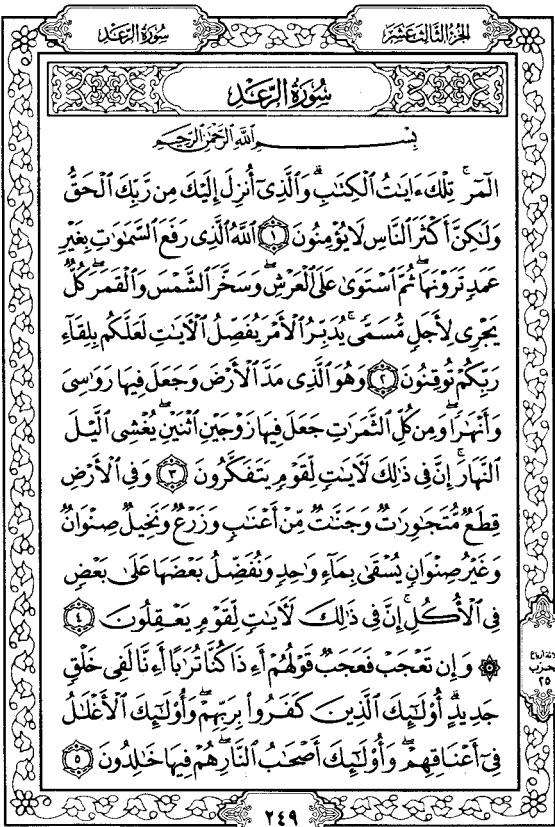 سُورَةُ الرَّعْدِ
الجُزْءُ الثَّالِثَ عَشَرَ
سُورَةُ الرَّعْدِ
بِسْمِ اللَّهِ الرَّحْمَٰنِ الرَّحِيمِ
الٓمٓر ۚ تِلْكَ ءَايَٰتُ ٱلْكِتَٰبِ ۗ وَٱلَّذِىٓ أُنزِلَ إِلَيْكَ مِن رَّبِّكَ ٱلْحَقُّ
وَلَٰكِنَّ أَكْثَرَ ٱلنَّاسِ لَا يُؤْمِنُونَ ١ ٱللَّهُ ٱلَّذِى رَفَعَ ٱلسَّمَٰوَٰتِ بِغَيْرِ
عَمَدٍ تَرَوْنَهَا ۖ ثُمَّ ٱسْتَوَىٰ عَلَى ٱلْعَرْشِ ۖ وَسَخَّرَ ٱلشَّمْسَ وَٱلْقَمَرَ ۖ كُلٌّ
يَجْرِى لِأَجَلٍ مُّسَمًّى ۚ يُدَبِّرُ ٱلْأَمْرَ يُفَصِّلُ ٱلْءَايَٰتِ لَعَلَّكُم بِلِقَآءِ
رَبِّكُمْ تُوقِنُونَ ٢ وَهُوَ ٱلَّذِى مَدَّ ٱلْأَرْضَ وَجَعَلَ فِيهَا رَوَٰسِىَ
وَأَنْهَٰرًا ۖ وَمِن كُلِّ ٱلثَّمَرَٰتِ جَعَلَ فِيهَا زَوْجَيْنِ ٱثْنَيْنِ ۖ يُغْشِى ٱلَّيْلَ
ٱلنَّهَارَ ۚ إِنَّ فِى ذَٰلِكَ لَءَايَٰتٍ لِّقَوْمٍ يَتَفَكَّرُونَ ٣ وَفِى ٱلْأَرْضِ
قِطَعٌ مُّتَجَٰوِرَٰتٌ وَجَنَّٰتٌ مِّنْ أَعْنَٰبٍ وَزَرْعٌ وَنَخِيلٌ صِنْوَانٌ
وَغَيْرُ صِنْوَانٍ يُسْقَىٰ بِمَآءٍ وَٰحِدٍ وَنُفَضِّلُ بَعْضَهَا عَلَىٰ بَعْضٍ
فِى ٱلْأُكُلِ ۚ إِنَّ فِى ذَٰلِكَ لَءَايَٰتٍ لِّقَوْمٍ يَعْقِلُونَ ٤
۞ وَإِن تَعْجَبْ فَعَجَبٌ قَوْلُهُمْ أَءِذَا كُنَّا تُرَٰبًا أَءِنَّا لَفِى خَلْقٍ
جَدِيدٍ ۗ أُو۟لَٰٓئِكَ ٱلَّذِينَ كَفَرُوا۟ بِرَبِّهِمْ ۖ وَأُو۟لَٰٓئِكَ ٱلْأَغْلَٰلُ
فِىٓ أَعْنَاقِهِمْ ۖ وَأُو۟لَٰٓئِكَ أَصْحَٰبُ ٱلنَّارِ ۖ هُمْ فِيهَا خَٰلِدُونَ ٥
حزب
٢٥
٢٤٩